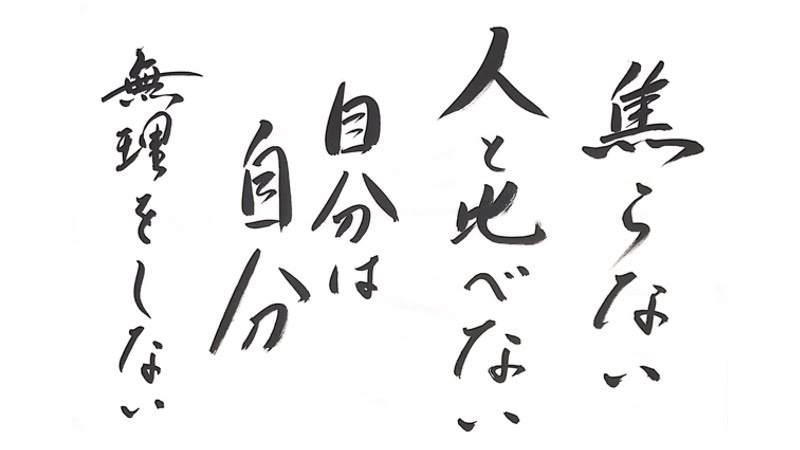 焦らない
人と比べない
自分は
自分
無理をしない